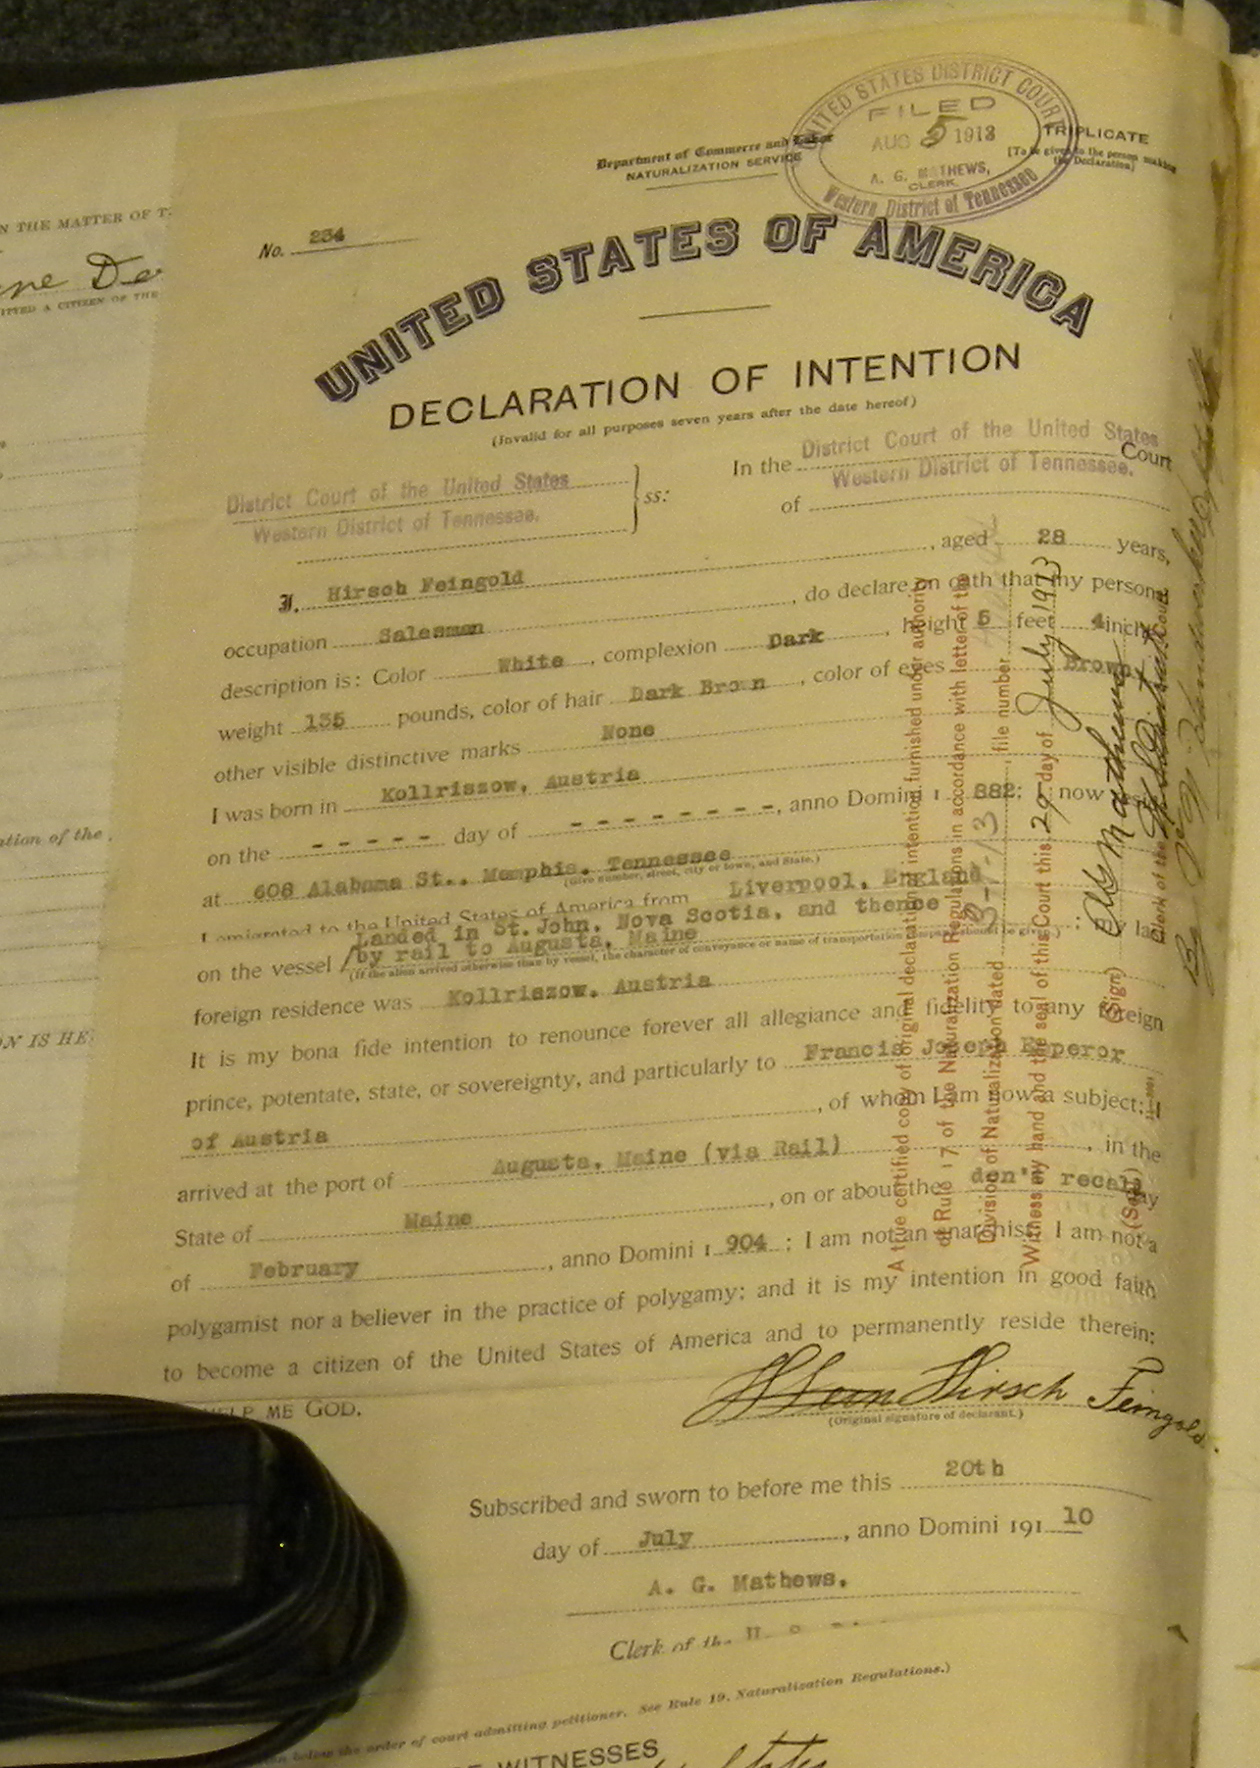 N THE MATTER OF T
ne De
ITTED A CITIZEN OF THE
ation of the
ON IS HE
UNITED STATES DISTRICT COURT
FILED
AUG 5 1913
A. G. MATHEWS,
CLERK.
Western District of Tennessee
Department of Commerce and Labor
NATURALIZATION SERVICE
TRIPLICATE
[To be given to the person making the Declaration]
No. 234
UNITED STATES OF AMERICA
DECLARATION OF INTENTION
(Invalid for all purposes seven years after the date hereof)
District Court of the United States
Western District of Tennessee.
ss:
In the District Court of the United States Court
of Western District of Tennessee.
I, Hirsch Feingold, aged 28 years,
occupation Salesman, do declare on oath that my personal
description is: Color White, complexion Dark, height 5 feet 4 inches
weight 135 pounds, color of hair Dark Brown, color of eyes Brown
other visible distinctive marks None
I was born in Kollriszow, Austria
on the - - - - - day of - - - - - - - -, anno Domini 1 882; now
at 608 Alabama St., Memphis, Tennessee
(Give number, street, city or town, and State.)
I emigrated to the United States of America from Liverpool, England
Landed in St. John, Nova Scotia, and thence
on the vessel / by rail to Augusta, Maine ; my last
(If the alien arrived otherwise than by vessel, the character of conveyance or name of transportation company should be given.)
foreign residence was Kollriszow, Austria
It is my bona fide intention to renounce forever all allegiance and fidelity to any foreign
prince, potentate, state, or sovereignty, and particularly to Francis Joseph Emperor
of Austria, of whom I am now a subject; I
arrived at the port of Augusta, Maine (via Rail), in the
State of Maine, on or about the don't recall day
of February, anno Domini 1 904 ; I am not an anarchist; I am not a
polygamist nor a believer in the practice of polygamy; and it is my intention in good faith
to become a citizen of the United States of America and to permanently reside therein:
HELP ME GOD.
Hirsch Feingold.
(Original signature of declarant.)
Subscribed and sworn to before me this 20th
day of July, anno Domini 191 10
A. G. Mathews.
Clerk of the
below the order of court admitting petitioner. See Rule 19, Naturalization Regulations.)
WITNESSES
States
A true certified copy of original declaration intention furnished under authority
of Rule 17 of the Naturalization Regulations in accordance with letter of the
Division of Naturalization dated 8-1-13, file number
Witness my hand and the seal of this Court this 29 day of July 1913
(Sign) A G Mathews
Clerk of the U S District Court
(Seal)
By